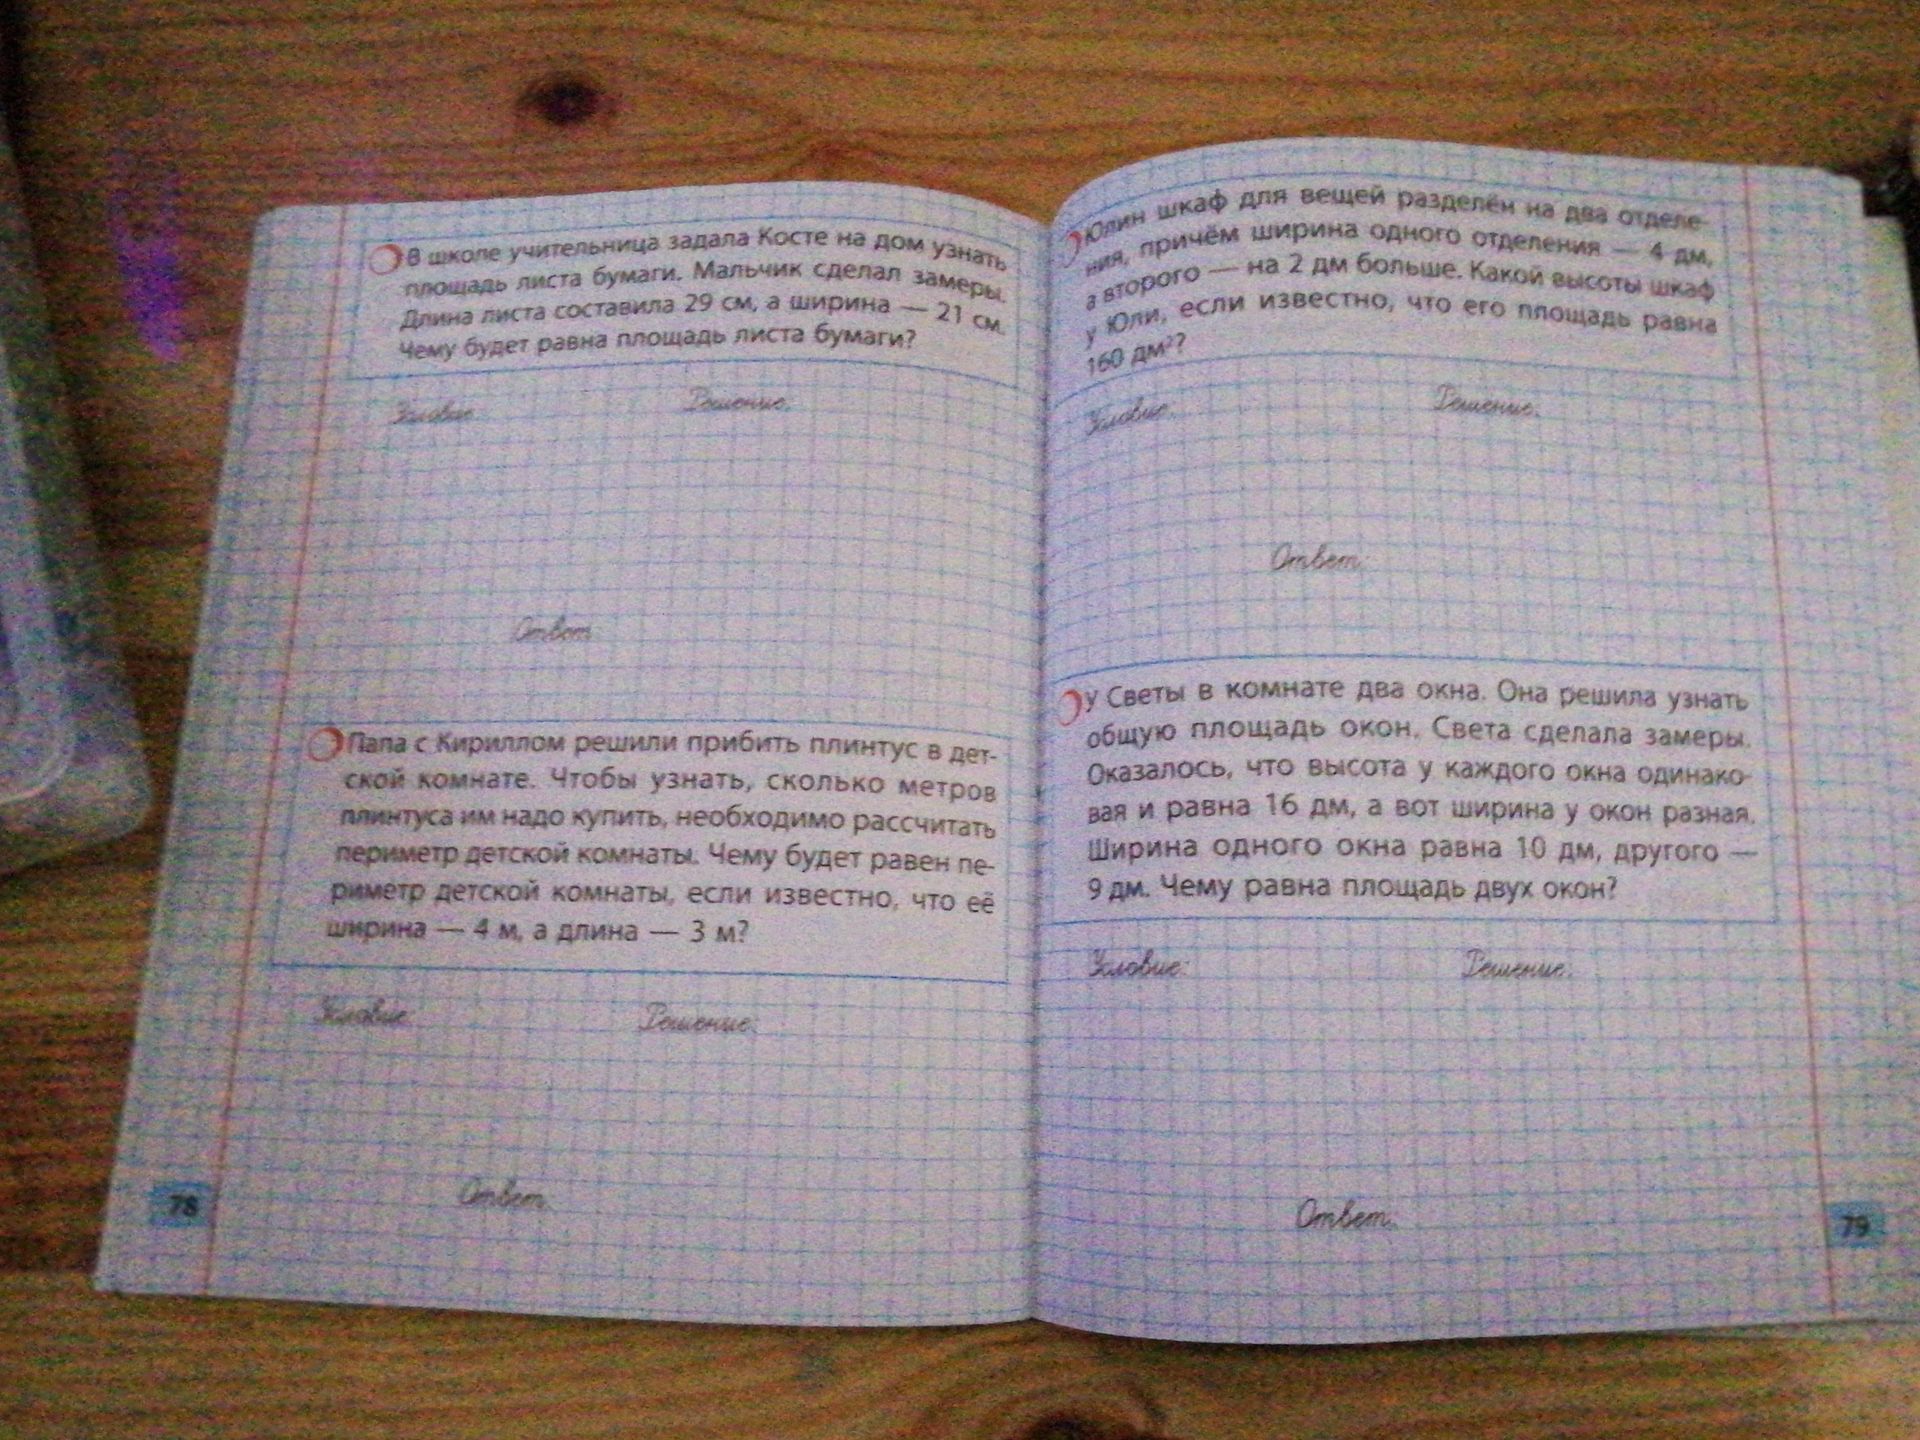 В школе учительница задала Косте на дом узнать
площадь листа бумаги. Мальчик сделал замеры.
Длина листа составила 29 см, а ширина — 21 см.
Чему будет равна площадь листа бумаги?
Условие: Решение:
Ответ:
Папа с Кириллом решили прибить плинтус в дет-
ской комнате. Чтобы узнать, сколько метров
плинтуса им надо купить, необходимо рассчитать
периметр детской комнаты. Чему будет равен пе-
риметр детской комнаты, если известно, что её
ширина — 4 м, а длина — 3 м?
Условие: Решение:
Ответ:
78
Юлин шкаф для вещей разделён на два отделе-
ния, причём ширина одного отделения — 4 дм,
а второго — на 2 дм больше. Какой высоты шкаф
у Юли, если известно, что его площадь равна
160 дм²?
Условие: Решение:
Ответ:
У Светы в комнате два окна. Она решила узнать
общую площадь окон. Света сделала замеры.
Оказалось, что высота у каждого окна одинако-
вая и равна 16 дм, а вот ширина у окон разная.
Ширина одного окна равна 10 дм, другого —
9 дм. Чему равна площадь двух окон?
Условие: Решение:
Ответ:
79